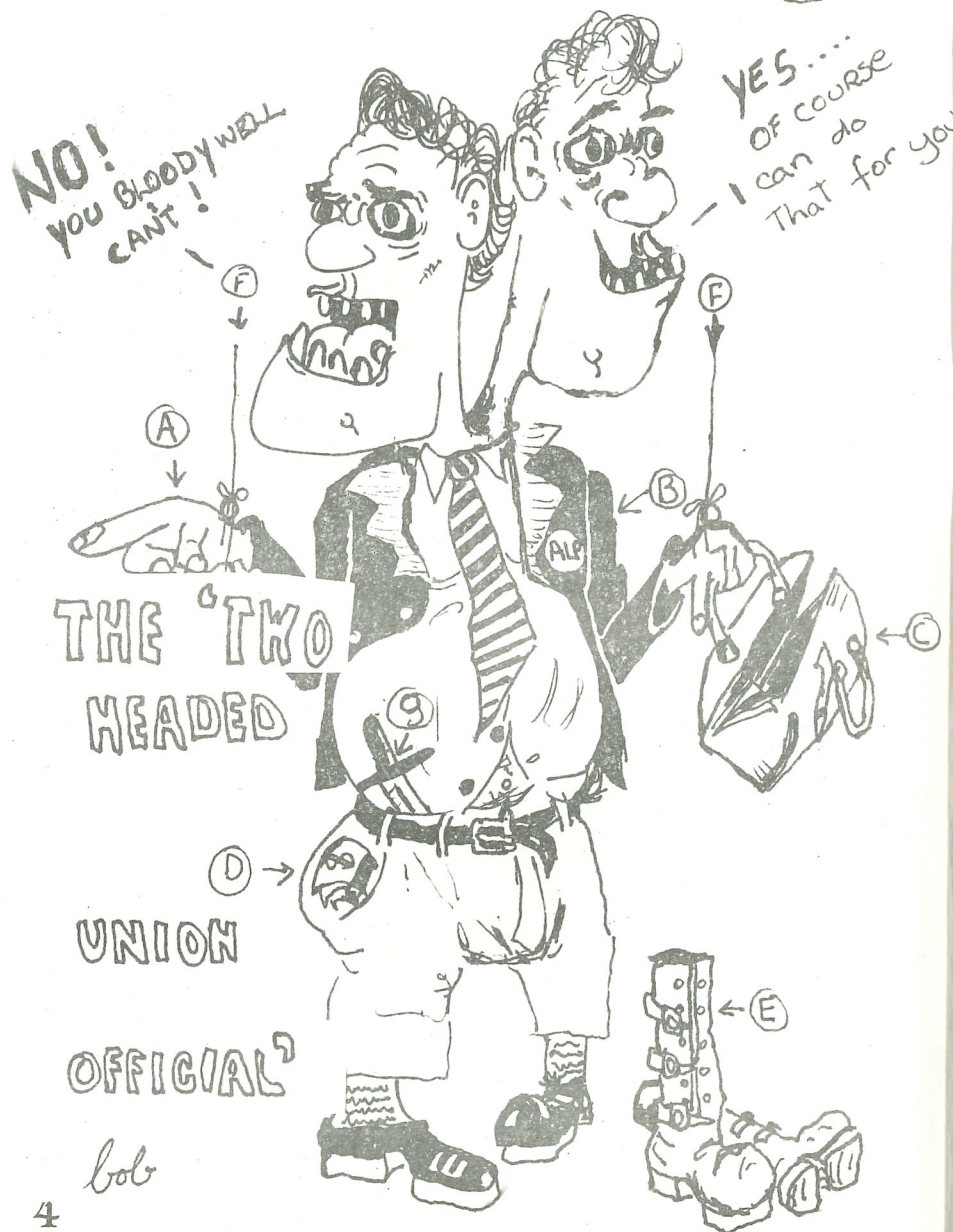 NO!
YOU BLOODY WELL
CAN'T!
YES....
OF COURSE
I can do
That for you
F
F
A
B
ALP
C
THE 'TWO
HEADED
g
D
UNION
E
OFFICIAL'
bob
4